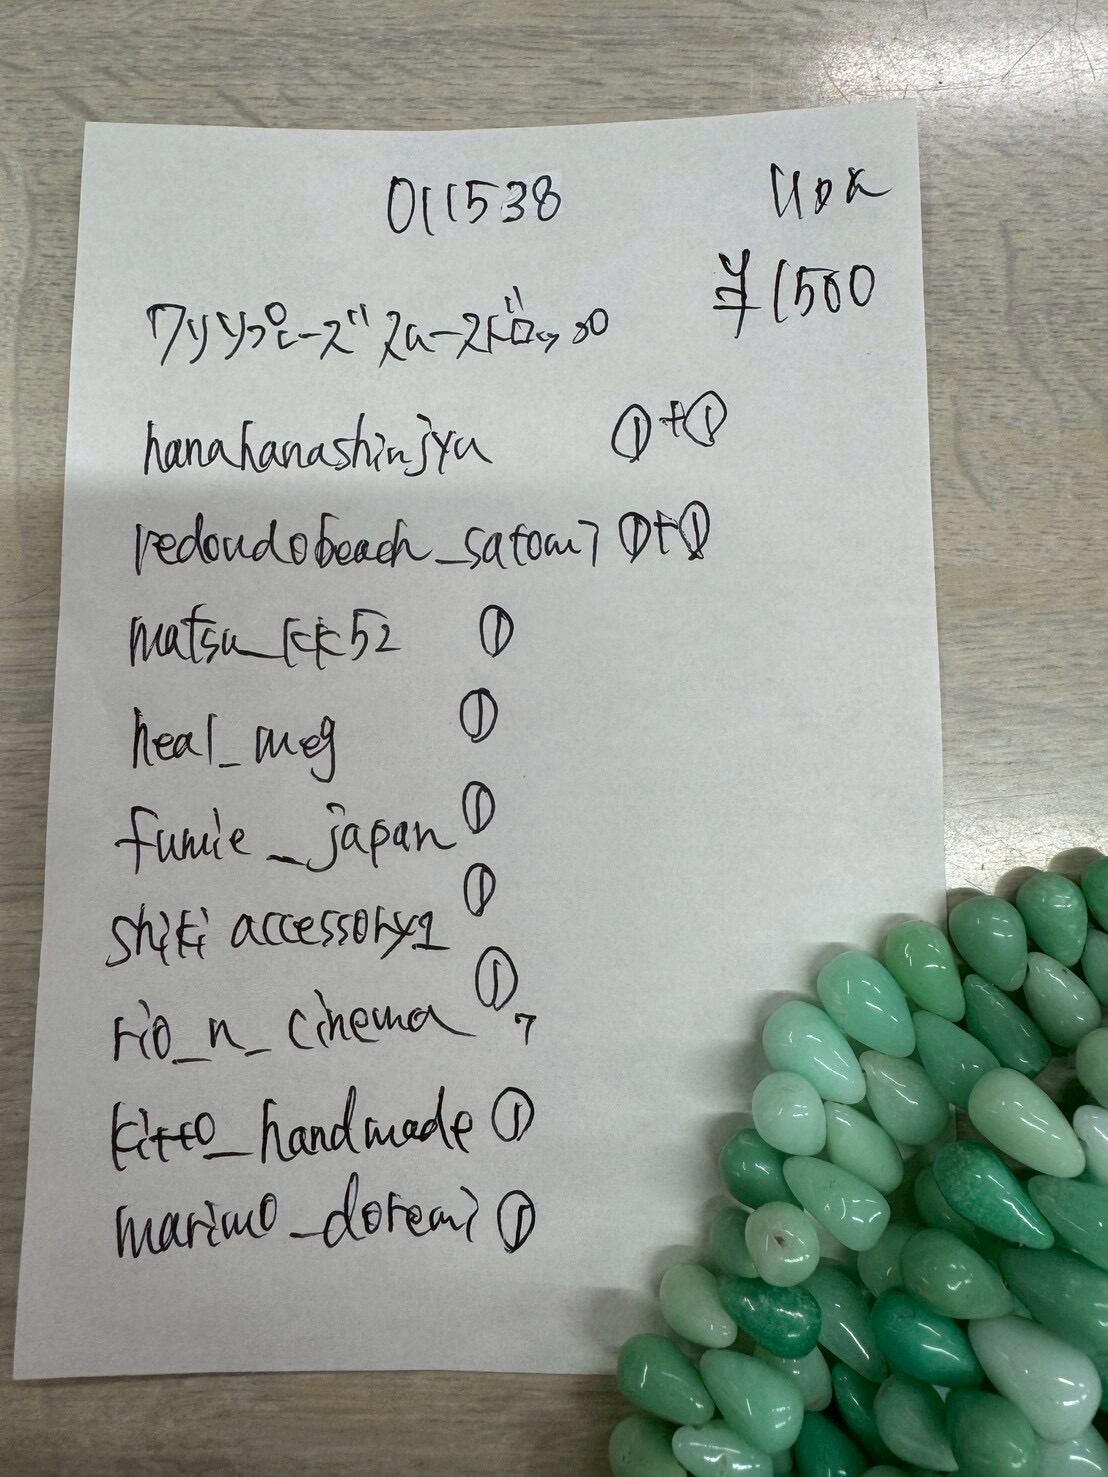 011538
¥1500
クリソプレーズ スムースドロップ
hanahanashinjyu ①+①
redoudobeach_satomi ①+①
matsu_kk52 ①
heal_meg ①
fumie_japan ①
shiki accessory1 ①
rio_n_cinema ①
7
kitto_handmade ①
marimo_doremi ①